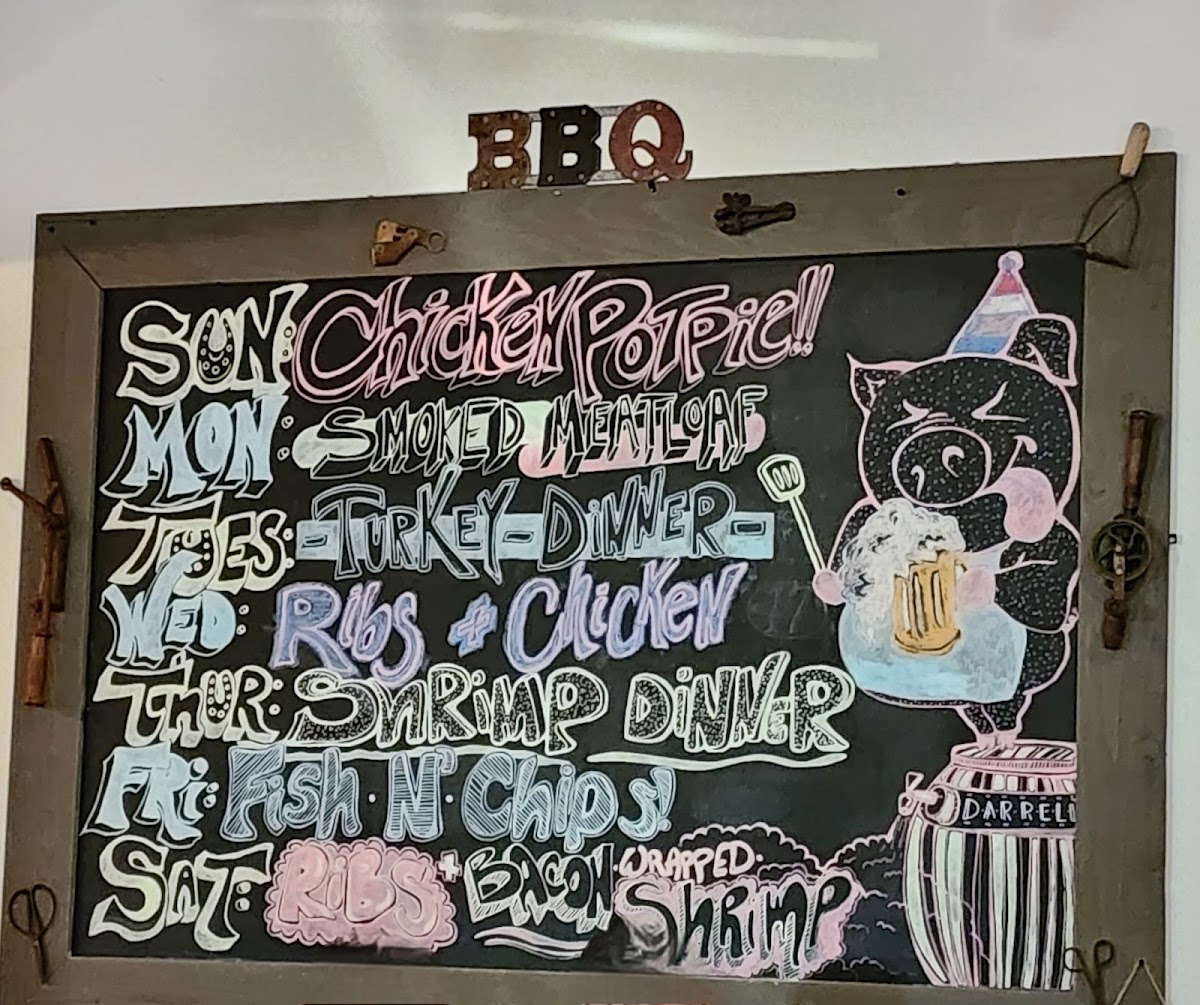 BBQ
SUN: Chicken Potpie!!
MON: SMOKED MEATLOAF
TUES: -TURKEY-DINNER-
WED: Ribs + Chicken
THUR: Shrimp DINNER
FRI: Fish · N' · Chips!
SAT: RIBS + BACON WRAPPED· Shrimp
DARRELL